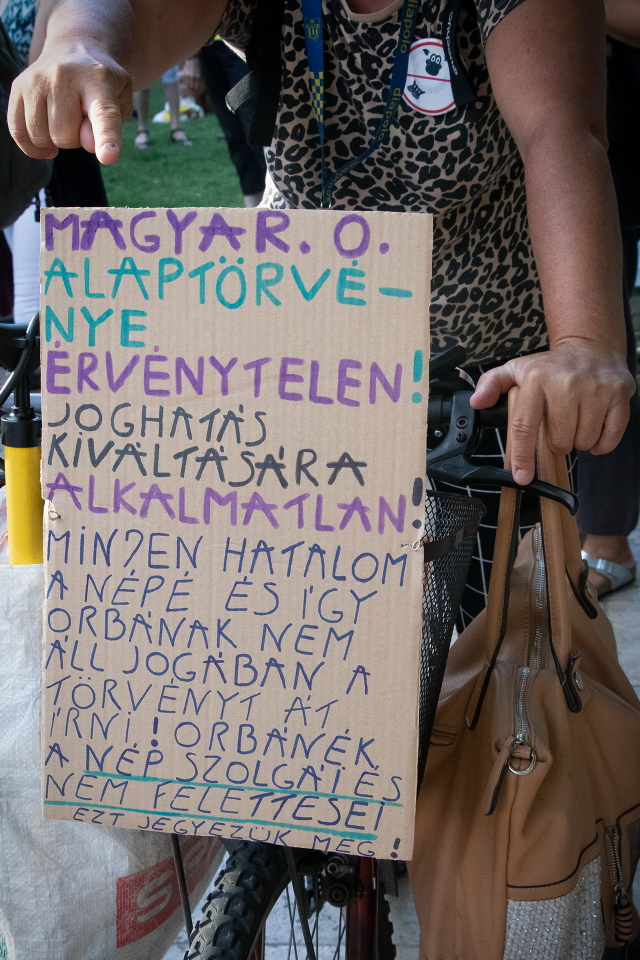 MAGYAR. O.
ALAPTÖRVÉ-
NYE
ÉRVÉNYTELEN!
JOGHATÁS
KIVÁLTÁSÁRA
ALKALMATLAN!
MINDEN HATALOM
A NÉPÉ ÉS ÍGY
ORBÁNAK NEM
ÁLL JOGÁBAN A
TÖRVÉNYT ÁT
ÍRNI! ORBÁNÉK
A NÉP SZOLGÁI ÉS
NEM FELETTESEI
EZT JEGYEZÜK MEG!